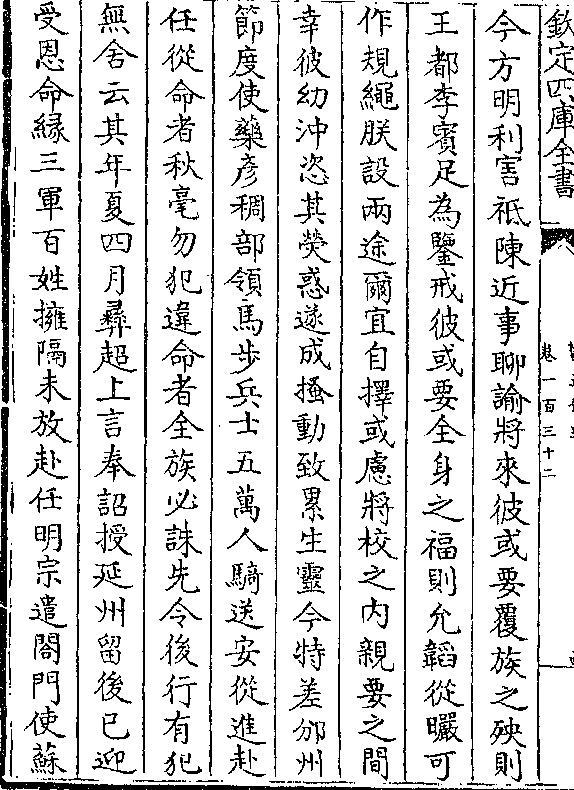 欽定四庫全書
卷一百三十二
今方明利害祗陳近事聊諭將來彼或要覆族之殃則
王都李賓足為鑒戒彼或要全身之福則允韜從曮可
作規繩朕設兩途爾宜自擇或慮將校之內親要之間
幸彼幼沖恣其熒惑遂成搔動致累生靈今特差邠州
節度使藥彥稠部領馬步兵士五萬人騎送安從進赴
任從命者秋毫勿犯違命者全族必誅先令後行有犯
無舍云其年夏四月彞超上言奉詔授延州留後已迎
受恩命緣三軍百姓擁隔未放赴任明宗遣閤門使蘇